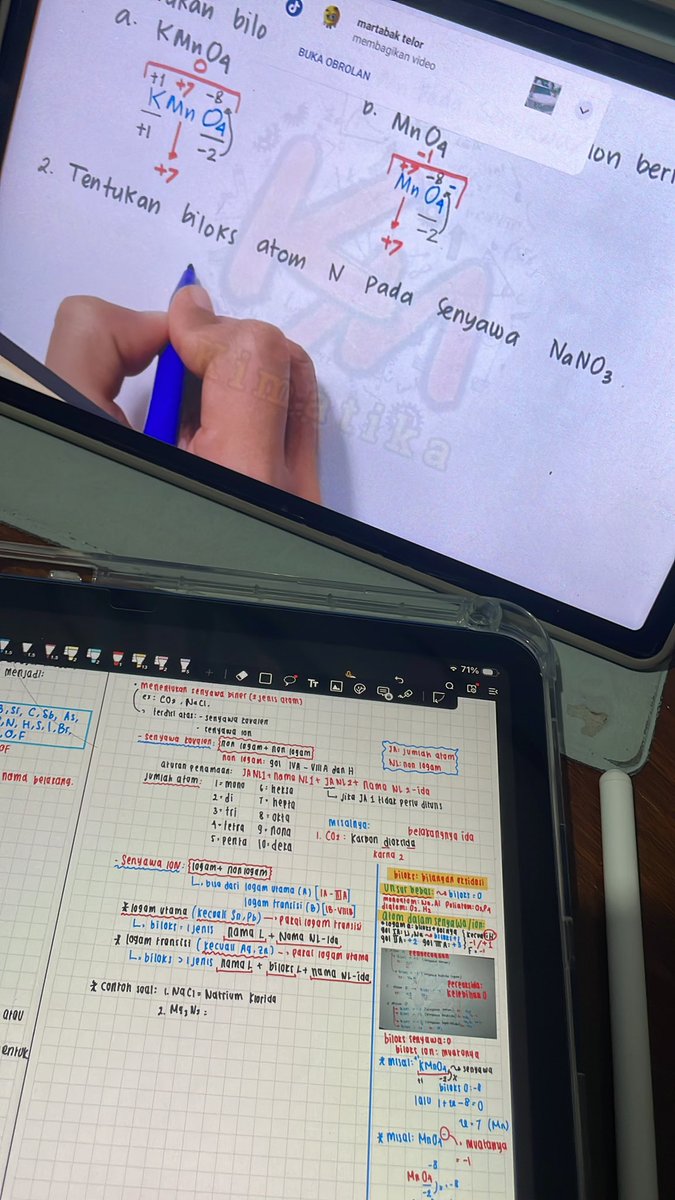 martabak telor
membagikan video
BUKA OBROLAN
ukan bilo
a. KMnO4
0
+1 +7 -8
KMnO4
+1 -2
+7
b. MnO4
ion beri
-1
+7 -8
MnO4-
-2
+7
2. Tentukan biloks atom N pada Senyawa NaNO3
Kimatika
71%
menjadi:
nama belakang.
atau
entuk
• menentukan senyawa biner (2 jenis atom)
ex: CO2, NaCl.
terdiri atas: - senyawa kovalen
- senyawa ion
- senyawa kovalen: non logam + non logam
non logam: gol IVA - VIIIA dan H
JA: jumlah atom
NL: non logam
aturan penamaan: JANL1 + nama NL1 + JANL2 + nama NL2-ida
jika JA 1 tidak perlu ditulis
jumlah atom: 1 = mono 6 = heksa
2 = di 7 = hepta
3 = tri 8 = okta
4 = tetra 9 = nona
5 = penta 10 = deka
misalnya:
belakangnya ida
1. CO2: Karbon dioksida
karna 2
- Senyawa ION: logam + non logam
bisa dari logam utama (A) [IA - IIIA]
logam transisi (B) [IB - VIIIB]
* logam utama (kecuali Sn, Pb) → pakai logam transisi
biloks: 1 jenis nama L + Nama NL-ida
* logam transisi (kecuali Ag, Zn) → pakai logam utama
biloks > 1 jenis nama L + biloks L + nama NL-ida
* contoh soal: 1. NaCl = Natrium Klorida
2. Mg3N2 =
biloks: bilangan oksidasi
Unsur bebas: biloks = 0
atom dalam senyawa/ion:
Peroksida:
kelebihan O
biloks senyawa: 0
biloks ion: muatannya
* misal: KMnO4 senyawa
+1 -2 x
biloks O: -8
lalu 1 + x - 8 = 0
x = 7 (Mn)
* misal: MnO4 - muatannya
= -1
-8
MnO4
-2 = -8